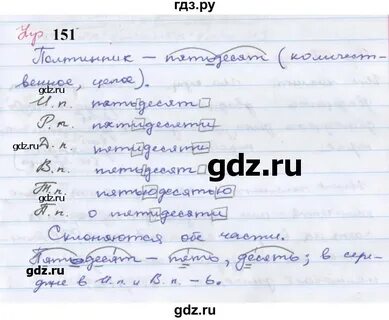 гдз.ру
Упр. 151
Полтинник – пятьдесят (количест-
венное, целое).
И.п. пятьдесят
Р.п. пятидесяти
Д.п. пятидесяти
В.п. пятьдесят
Т.п. пятьюдесятью
П.п. о пятидесяти
Склоняются обе части.
Пятьдесят – пять, десять; в сере-
дине в И.п. и В.п. – ь.
gdz.ru
gdz.ru
gdz.ru
gdz.ru